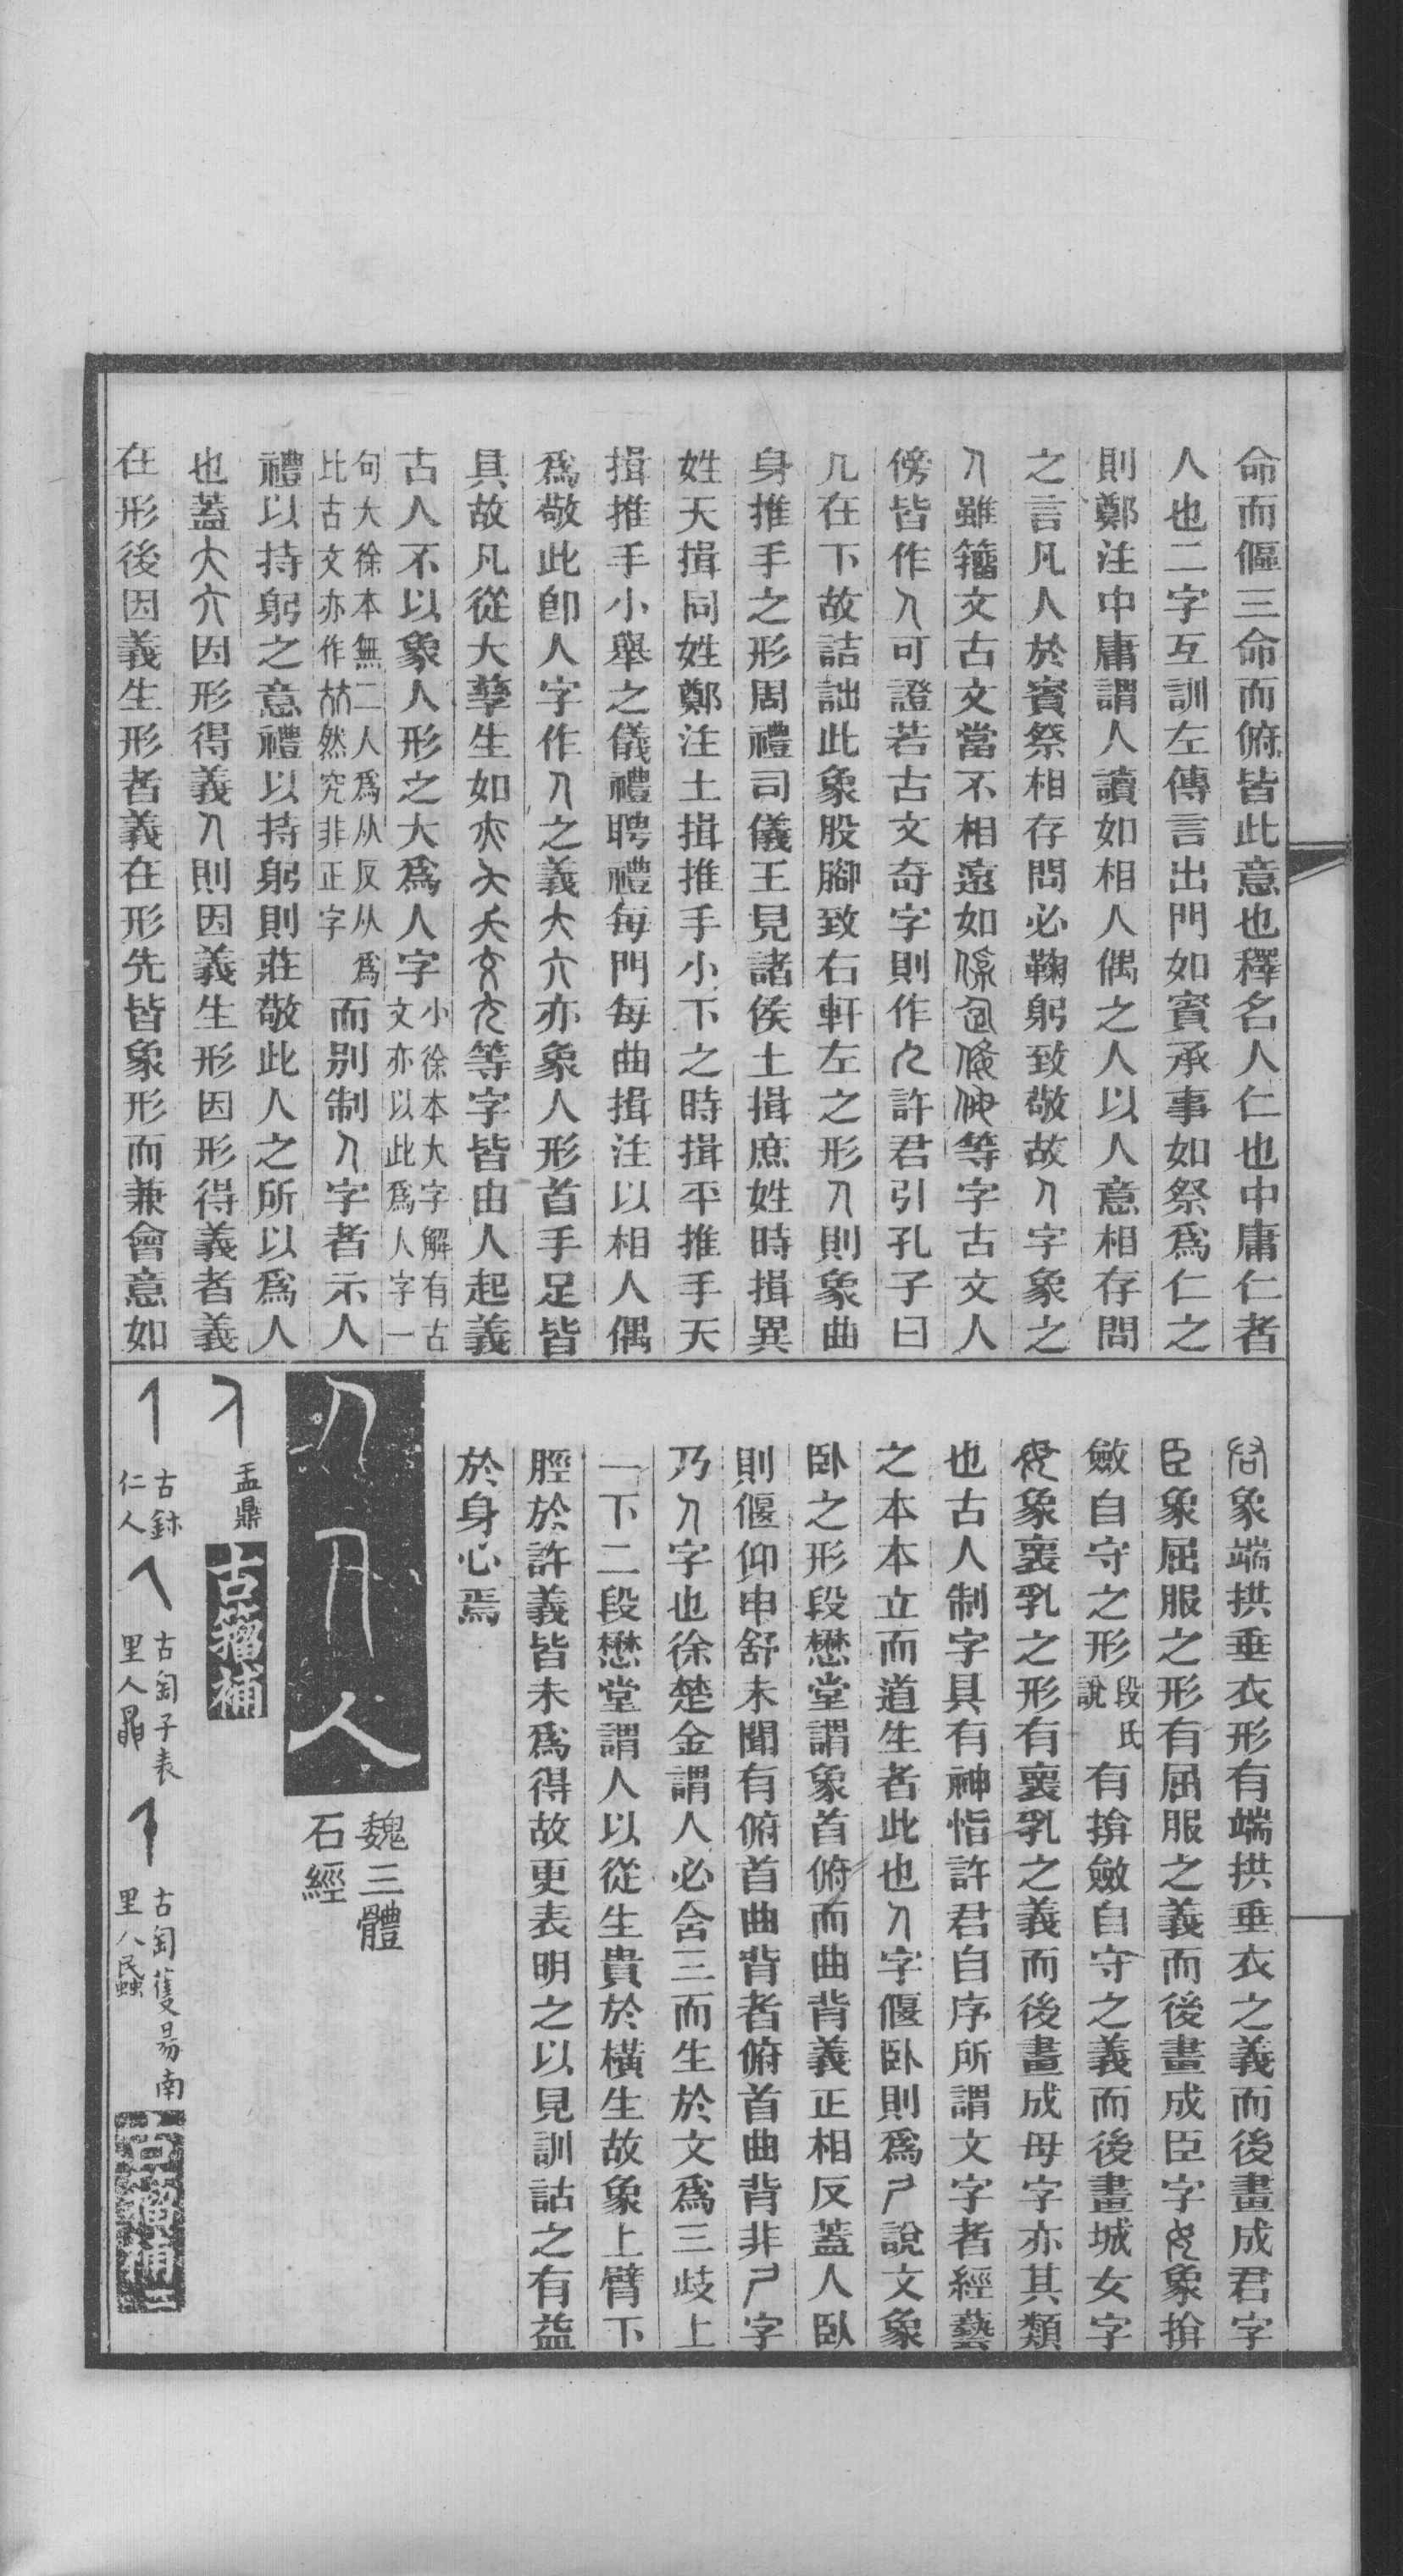 命而傴三命而俯皆此意也釋名人仁也中庸仁者
人也二字互訓左傳言出門如賓承事如祭爲仁之
則鄭注中庸謂人讀如相人偶之人以人意相存問
之言凡人於賓祭相存問必鞠躬致敬故人字象之
人雖籀文古文當不相遠如等字古文人
傍皆作人可證若古文奇字則作儿許君引孔子曰
儿在下故詰詘此象股腳致右軒左之形人則象曲
身推手之形周禮司儀王見諸侯土揖庶姓時揖異
姓天揖同姓鄭注土揖推手小下之時揖平推手天
揖推手小舉之儀禮聘禮每門每曲揖注以相人偶
爲敬此卽人字作人之義大亣亦象人形首手足皆
具故凡從大孳生如等字皆由人起義
古人不以象人形之大爲人字小徐本大字解有古文亦以此爲人字一
句大徐本無二人爲从反从爲比古文亦作然究非正字而别制人字者示人
禮以持躬之意禮以持躬則莊敬此人之所以爲人
也蓋大亣因形得義人則因義生形因形得義者義
在形後因義生形者義在形先皆象形而兼會意如
象端拱垂衣形有端拱垂衣之義而後畫成君字
臣象屈服之形有屈服之義而後畫成臣字象揜
斂自守之形段氏說有揜斂自守之義而後畫城女字
象褱乳之形有褱乳之義而後畫成母字亦其類
也古人制字具有神恉許君自序所謂文字者經藝
之本本立而道生者此也人字偃臥則爲尸說文象
臥之形段懋堂謂象首俯而曲背義正相反蓋人臥
則偃仰申舒未聞有俯首曲背者俯首曲背非尸字
乃人字也徐楚金謂人必含三而生於文爲三歧上
一下二段懋堂謂人以從生貴於橫生故象上臂下
脛於許義皆未爲得故更表明之以見訓詁之有益
於身心焉
人人人
魏三體
石經
人
盂鼎
古籀補
人
古鉢
仁人
人
古匋子表
里人
人
古匋蒦昜南
里人民
古籀補二